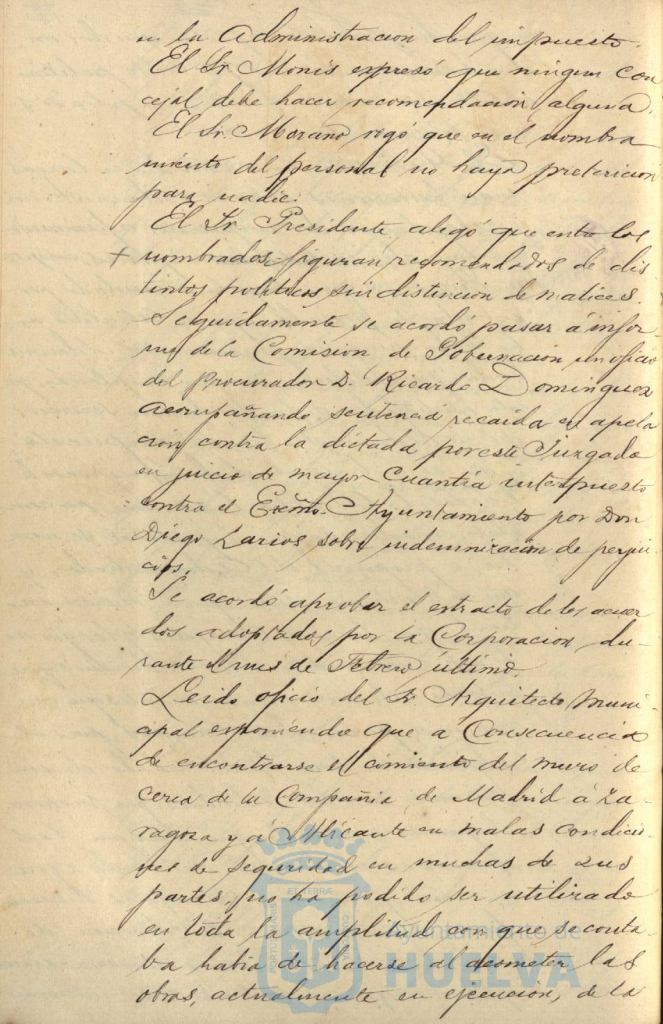 en la Administracion del impuesto.
El Sr. Monis expresó que ningun con
cejal debe hacer recomendación alguna.
El Sr. Morano rogó que en el nombra
miento del personal no haya pretericion
para nadie.
El Sr. Presidente, alegó que entre los
+ nombrados figuran recomendados de dis
tintos politicos sin distincion de matices.
Seguidamente se acordó pasar á infor
me de la Comision de Gobernación un oficio
del Procurador D. Ricardo Dominguez
acompañando sentencia recaida en apela
ción contra la dictada por este Juzgado
en juicio de mayor cuantía interpuesto
contra el Excmo. Ayuntamiento por Don
Diego Larios sobre indemnizacion de perjui
cios.
Se acordó aprobar el extracto de los acuer
dos adoptados por la Corporacion du-
rante el mes de Febrero último.
Leido oficio del Sr. Arquitecto muni-
cipal exponiendo que a consecuencia
de encontrarse el cimiento del muro de
cerca de la Compañia de Madrid á Za-
ragoza y á Alicante en malas condicio
nes de seguridad en muchas de sus
partes, no ha podido ser utilizado
en toda la amplitud con que se conta-
ba habia de hacerse al acometer las
obras, actualmente en ejecucion, de la
Ayuntamiento de
HUELVA